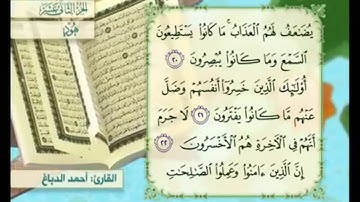 الجزء الثاني عشر
هود
يُضَٰعَفُ لَهُمُ ٱلۡعَذَابُۚ مَا كَانُواْ يَسۡتَطِيعُونَ
ٱلسَّمۡعَ وَمَا كَانُواْ يُبۡصِرُونَ ٢٠
أُوْلَٰٓئِكَ ٱلَّذِينَ خَسِرُوٓاْ أَنفُسَهُمۡ وَضَلَّ
عَنۡهُم مَّا كَانُواْ يَفۡتَرُونَ ٢١ لَا جَرَمَ
أَنَّهُمۡ فِي ٱلۡأٓخِرَةِ هُمُ ٱلۡأَخۡسَرُونَ ٢٢
إِنَّ ٱلَّذِينَ ءَامَنُواْ وَعَمِلُواْ ٱلصَّٰلِحَٰتِ
القارئ: أحمد الدباغ